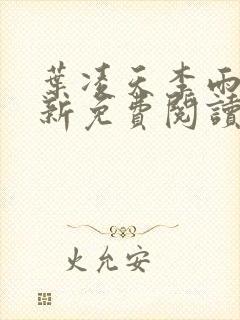 葉凌天李雨
新免費閱讀
火允安